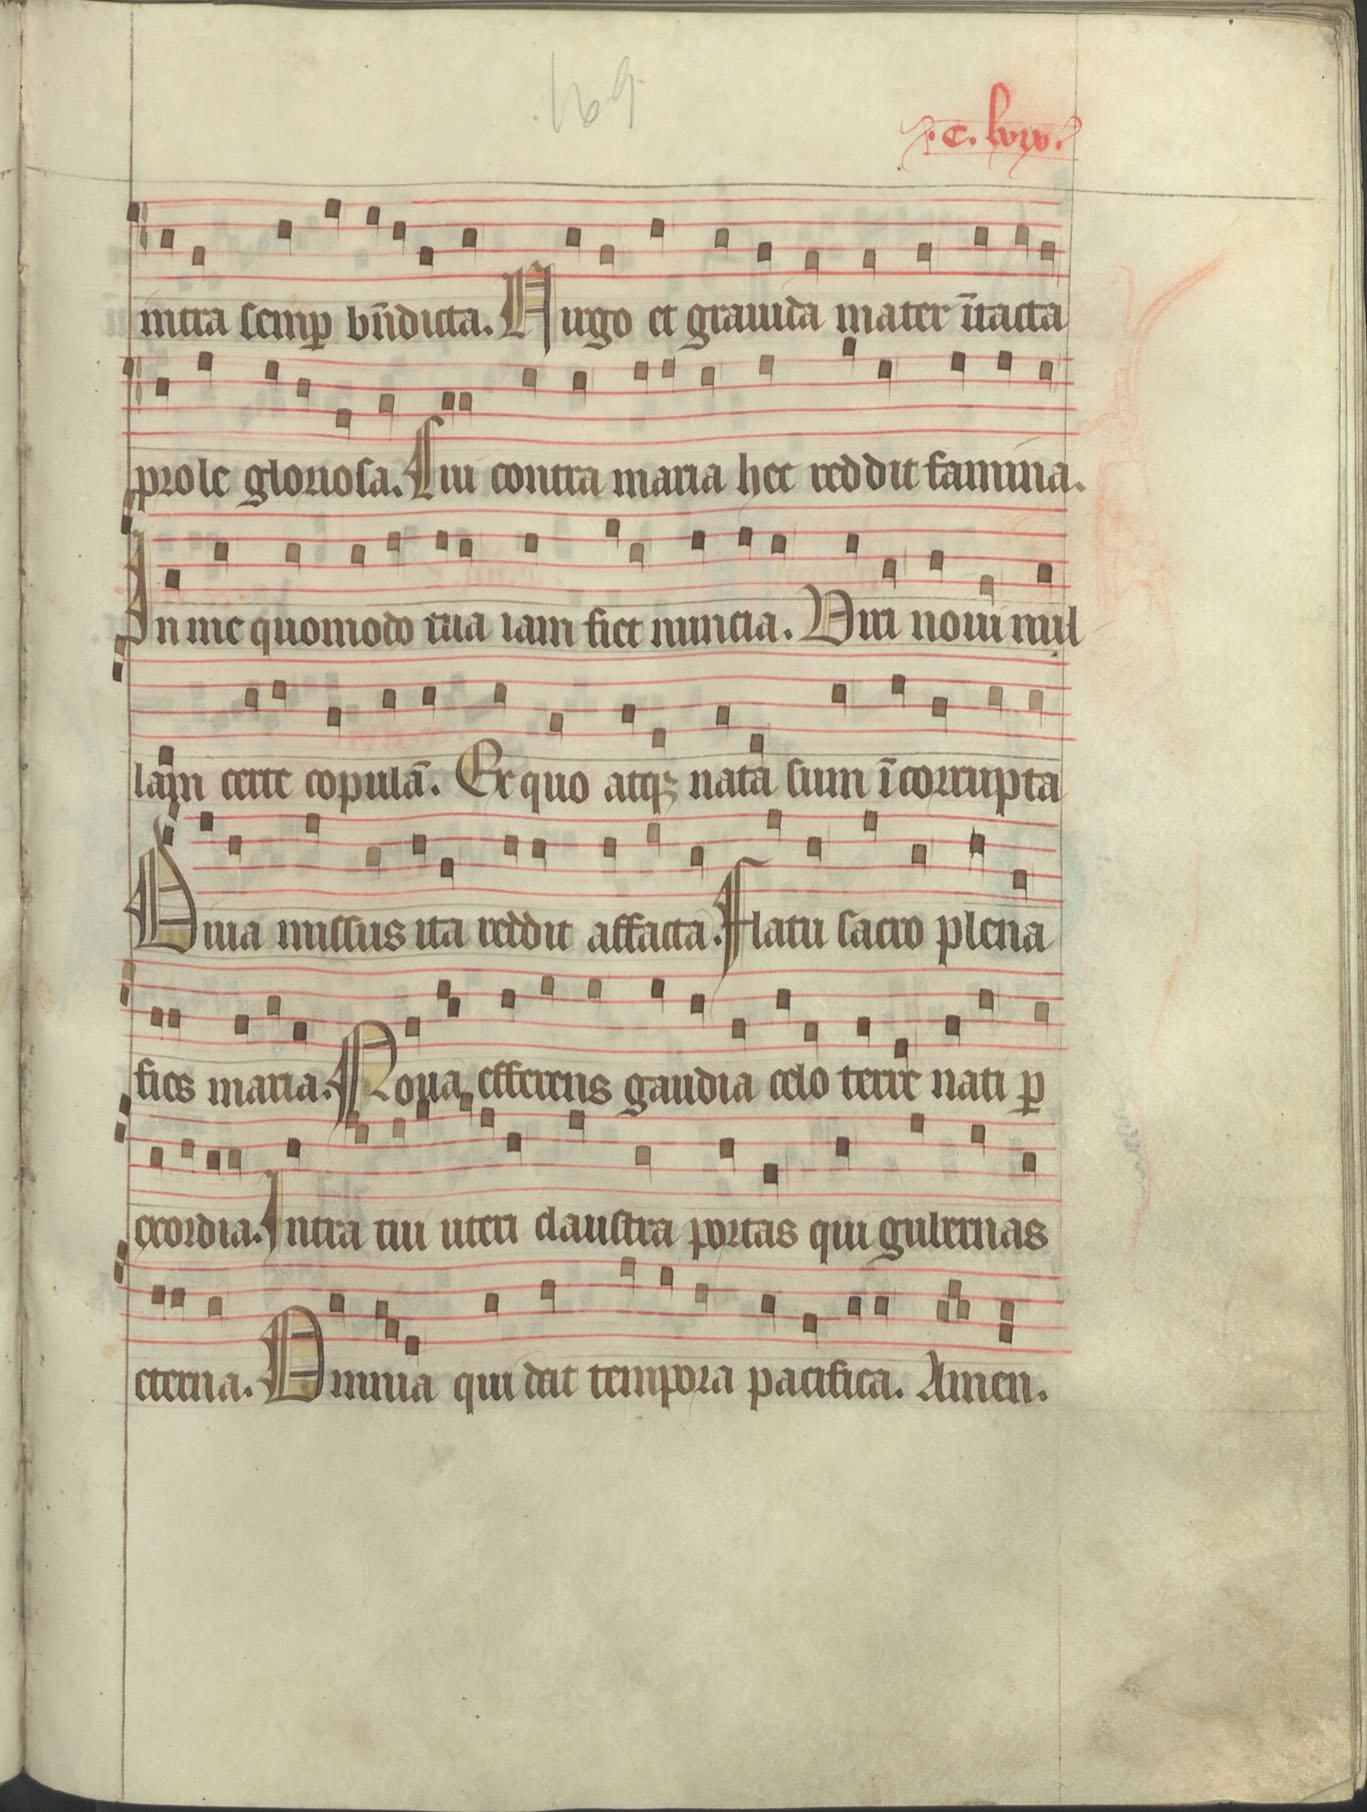 169
.c. lxix.
intra semp̱ bn̄dicta. Uirgo et grauida mater ītacta
prole gloriosa. Sui contra maria hec reddit famina.
In me quomodo tua iam fiet nuncia. Viri noui nul
lam certe copulā. Ex quo atqꝫ nata sum īcorrupta
Diua missus ita reddit affatta. Flatu sacro plena
fies maria. Noua efferens gaudia celo terre nati ꝑ
exordia. Intra tui uteri claustra portas qui gubernas
eterna. Omnia qui dat tempora pacifica. Amen.